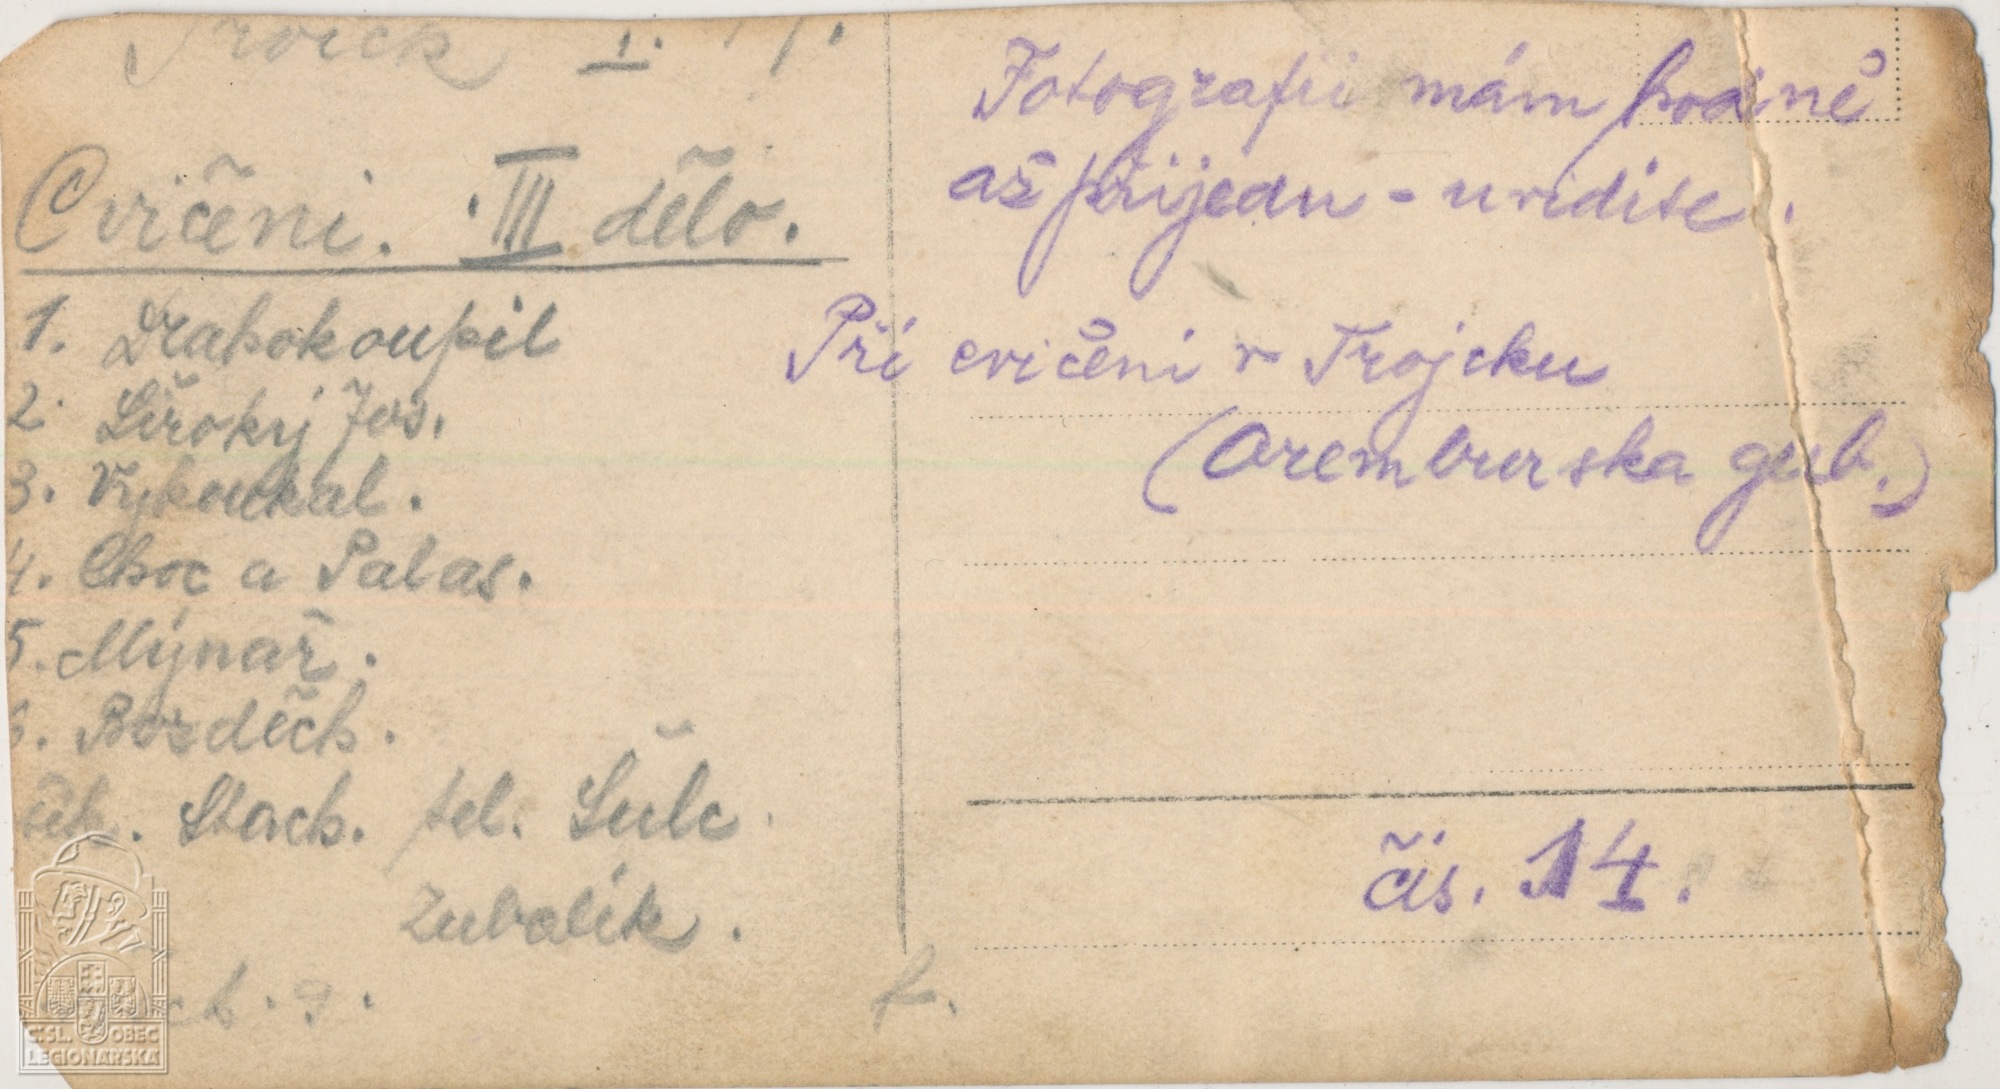 Troick I.
Cvičení. III dělo.
1. Drahokoupil
2. Široký Jos.
3. Vykoukal.
4. Choc a Palas.
5. Mýnař.
6. Bozděch.
Stach. tel. Šulc
Zubalík.
Fotografii mám hodině
až přijedu - uvidite.
Při cvičeni v Trojcku
(Oremburska gub.)
čís. 14.
Č.SL. OBEC
LEGIONÁŘSKÁ